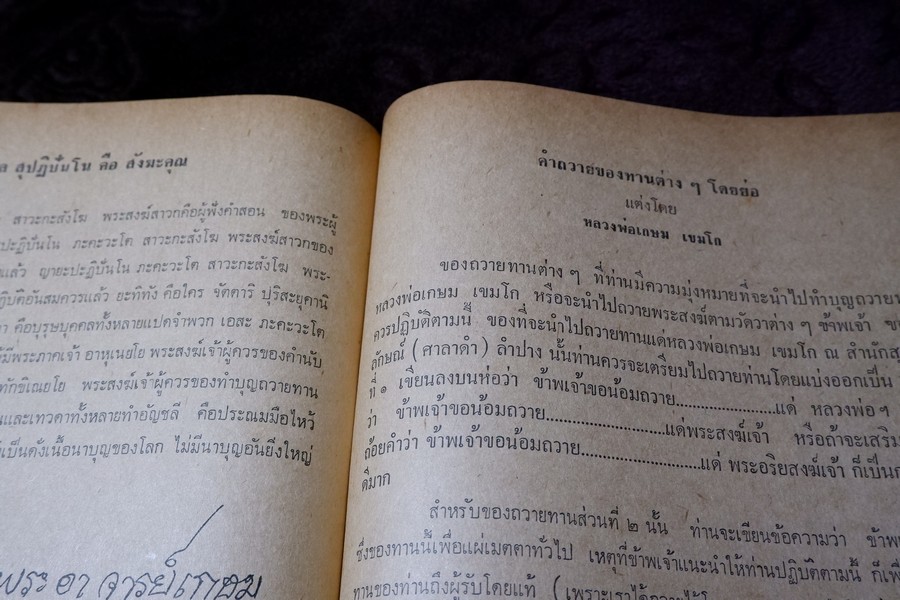 สุปฏิปันโน คือ สังฆะคุณ
สาวะกะสังโฆ พระสงฆ์สาวกคือผู้ฟังคำสอน ของพระผู้
ปะฏิปันโน ภะคะวะโต สาวะกะสังโฆ พระสงฆ์สาวกของ
แล้ว ญายะปะฏิปันโน ภะคะวะโต สาวะกะสังโฆ พระ-
ฏิบัติอันสมควรแล้ว ยะทิทัง คือใคร จัตตาริ ปุริสะยุคานิ
คือบุรุษบุคคลทั้งหลายแปดจำพวก เอสะ ภะคะวะโต
มีพระภาคเจ้า อาหุเนยโย พระสงฆ์เจ้าผู้ควรของคำนับ
ทักขิเณยโย พระสงฆ์เจ้าผู้ควรของทำบุญถวายทาน
และเทวดาทั้งหลายทำอัญชลี คือประณมมือไหว้
เป็นดั่งเนื้อนาบุญของโลก ไม่มีนาบุญอันยิ่งใหญ่
พระอาจารย์เกษม
คำถวายของทานต่าง ๆ โดยย่อ
แต่งโดย
หลวงพ่อเกษม เขมโก
ของถวายทานต่าง ๆ ที่ท่านมีความมุ่งหมายที่จะนำไปทำบุญถวาย
หลวงพ่อเกษม เขมโก หรือจะนำไปถวายพระสงฆ์ตามวัดวาต่าง ๆ ข้าพเจ้า
ควรปฏิบัติตามนี้ ของที่จะนำไปถวายทานแด่หลวงพ่อเกษม เขมโก ณ สำนัก
ลักษณ์ (ศาลาดำ) ลำปาง นั้นท่านควรจะเตรียมไปถวายท่านโดยแบ่งออกเป็น
ที่ ๑ เขียนลงบนห่อว่า ข้าพเจ้าขอน้อมถวาย....................แด่ หลวงพ่อฯ
ว่า ข้าพเจ้าขอน้อมถวาย........................แด่พระสงฆ์เจ้า หรือถ้าจะเสริม
ถ้อยคำว่า ข้าพเจ้าขอน้อมถวาย........................แด่ พระอริยสงฆ์เจ้า ก็เป็น
ดีมาก
สำหรับของถวายทานส่วนที่ ๒ นั้น ท่านจะเขียนข้อความว่า
ซึ่งของทานนี้เพื่อแผ่เมตตาทั่วไป เหตุที่ข้าพเจ้าแนะนำให้ท่านปฏิบัติตามนี้ ก็เพื่
ทานของท่านถึงผู้รับโดยแท้ (เพราะเราได้